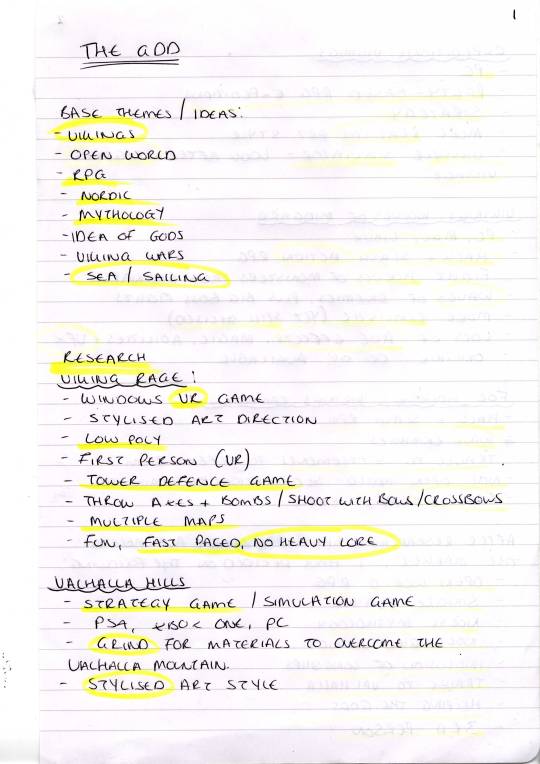 1
THE GDD
BASE THEMES / IDEAS:
- VIKINGS
- OPEN WORLD
- RPG
- NORDIC
- MYTHOLOGY
- IDEA OF GODS
- VIKING WARS
- SEA / SAILING
RESEARCH
VIKING RAGE:
- WINDOWS VR GAME
- STYLISED ART DIRECTION
- LOW POLY
- FIRST PERSON (VR)
- TOWER DEFENCE GAME
- THROW AXES + BOMBS / SHOOT WITH BOWS / CROSSBOWS
- MULTIPLE MAPS
- FUN, FAST PACED, NO HEAVY LORE
VALHALLA HILLS
- STRATEGY GAME / SIMULATION GAME
- PS4, XBOX ONE, PC
- GRIND FOR MATERIALS TO OVERCOME THE
VALHALLA MOUNTAIN.
- STYLISED ART STYLE